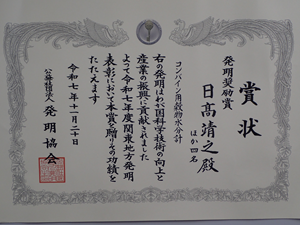 賞状
発明奨励賞
日髙靖之殿
ほか四名
コンバイン用穀物水分計
右の発明はわが国科学技術の向上と
産業の振興に貢献されました
よって令和七年度関東地方発明
表彰において本賞を贈りその功績を
たたえます
令和七年十一月二十日
公益社団法人 発明協会